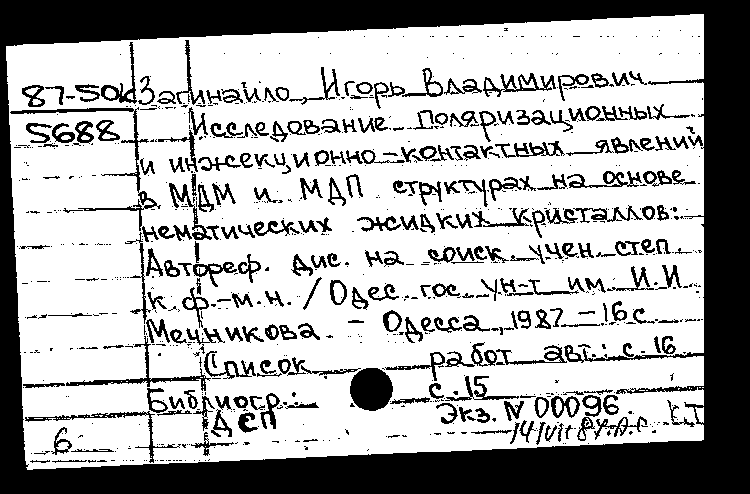 87-50к Загинайло, Игорь Владимирович
5688 Исследование поляризационных
и инжекционно-контактных явлений
в МДМ и МДП структурах на основе
нематических жидких кристаллов:
Автореф. дис. на соиск. учен. степ.
к. ф.-м.н. / Одес. гос. ун-т им И.И
Мечникова. - Одесса, 1987 - 16 с
Список работ авт.: с. 16
Библиогр.: с. 15
ДСП Экз. N 00096. К.Т
6